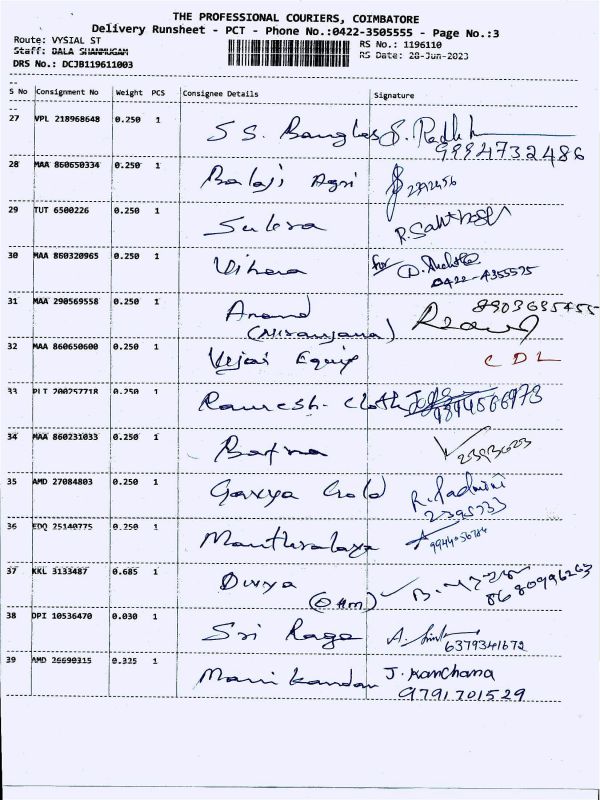 THE PROFESSIONAL COURIERS, COIMBATORE
Delivery Runsheet - PCT - Phone No.:0422-3505555 - Page No.:3
Route: VYSIAL ST
RS No.: 1196110
Staff: BALA SHANMUGAM
RS Date: 28-Jun-2023
DRS No.: DCJB119611003
S No Consignment No Weight PCS Consignee Details Signature
27 VPL 218968648 0.250 1 S S. Bangles S. Radh
9994732486
28 MAA 860650334 0.250 1 Balaji Agri
29 TUT 6500226 0.250 1 R. Santhosh
30 MAA 860320965 0.250 1 Vihana for
0422-4355575
31 MAA 290569558 0.250 1 Anand 8903635455
(Niranjana)
32 MAA 860650600 0.250 1 Vijai Equip C D L
33 PLT 200257718 0.250 1 Ramresh Cloth
34 MAA 860231033 0.250 1
35 AMD 27084803 0.250 1 Gavya Gold R. Padmini
2395733
36 EDQ 25140775 0.250 1 Manthralaya
37 KKL 3133487 0.685 1 Divya B.
8680996263
38 DPI 10536470 0.030 1 Sri Raga A.
6379341672
39 AMD 26690315 0.325 1 Mani kandan J. Kanchana
9791701529